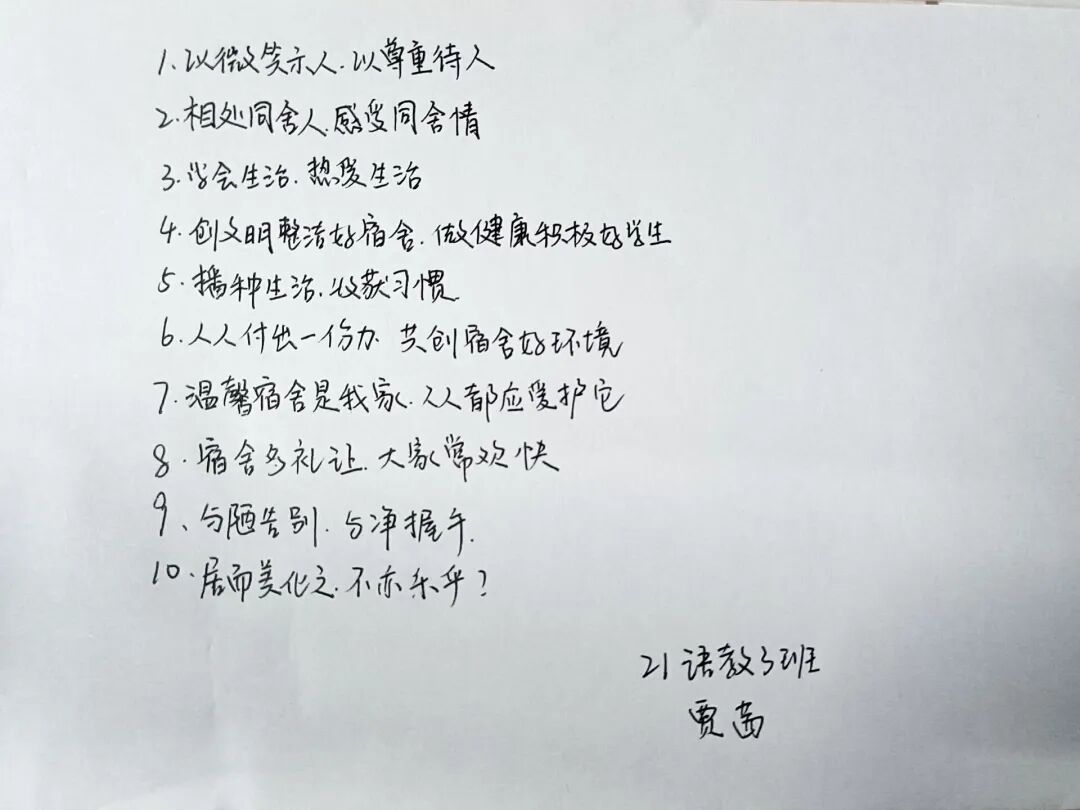 1、以微笑示人.以尊重待人
2.相处同舍人.感受同舍情
3.学会生活.热爱生活
4.创文明整洁好宿舍.做健康积极好学生
5.播种生活.收获习惯.
6.人人付出一份力 共创宿舍好环境
7.温馨宿舍是我家.人人都应爱护它
8.宿舍多礼让.大家常欢快
9、与陋告别.与净握手.
10.居而美化之.不亦乐乎?
21语教3班
贾茜